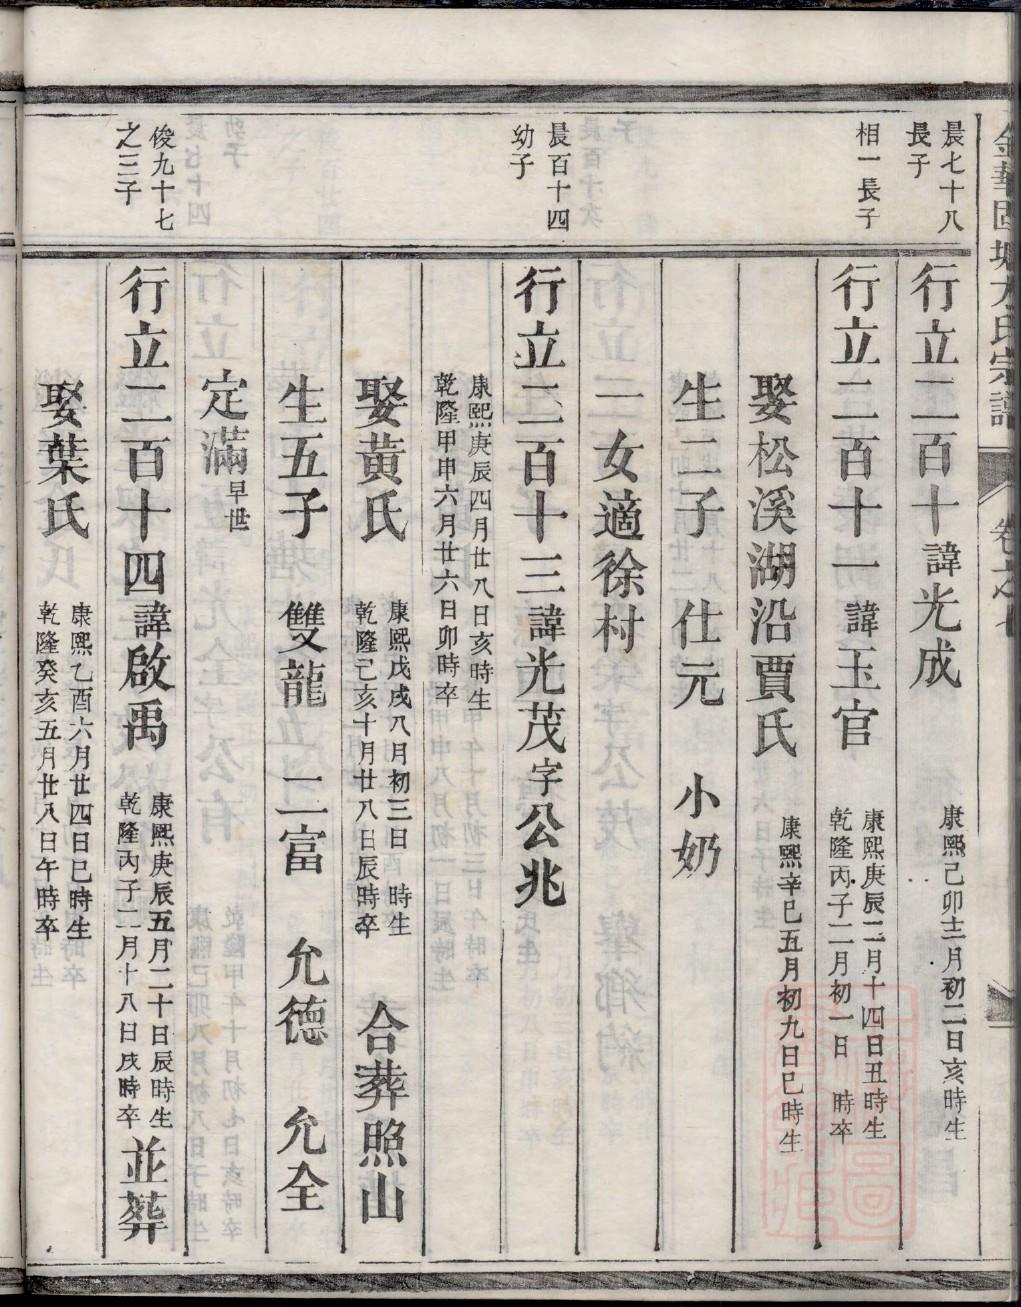 金華固塘方氏宗譜
晨七十八
長子
行立二百十諱光成
康熙己卯十二月初二日亥時生
相一長子
行立二百十一諱玉官
康熙庚辰二月十四日丑時生
乾隆丙子二月初一日　時卒
娶松溪湖沿賈氏
康熙辛巳五月初九日巳時生
生二子　仕元　小奶
一女適徐村
晨百十四
幼子
行立二百十三諱光茂字公兆
康熙庚辰四月廿八日亥時生
乾隆甲申六月廿六日卯時卒
娶黃氏
康熙戊戌八月初三日　時生
乾隆己亥十月廿八日辰時卒
合葬照山
生五子　雙龍　二富　允德　允全
定滿早世
俊九十七
之三子
行立二百十四諱啟禹
康熙庚辰五月二十日辰時生
乾隆丙子二月十八日戌時卒
並葬
娶葉氏
康熙乙酉六月廿四日巳時生
乾隆癸亥五月廿八日午時卒